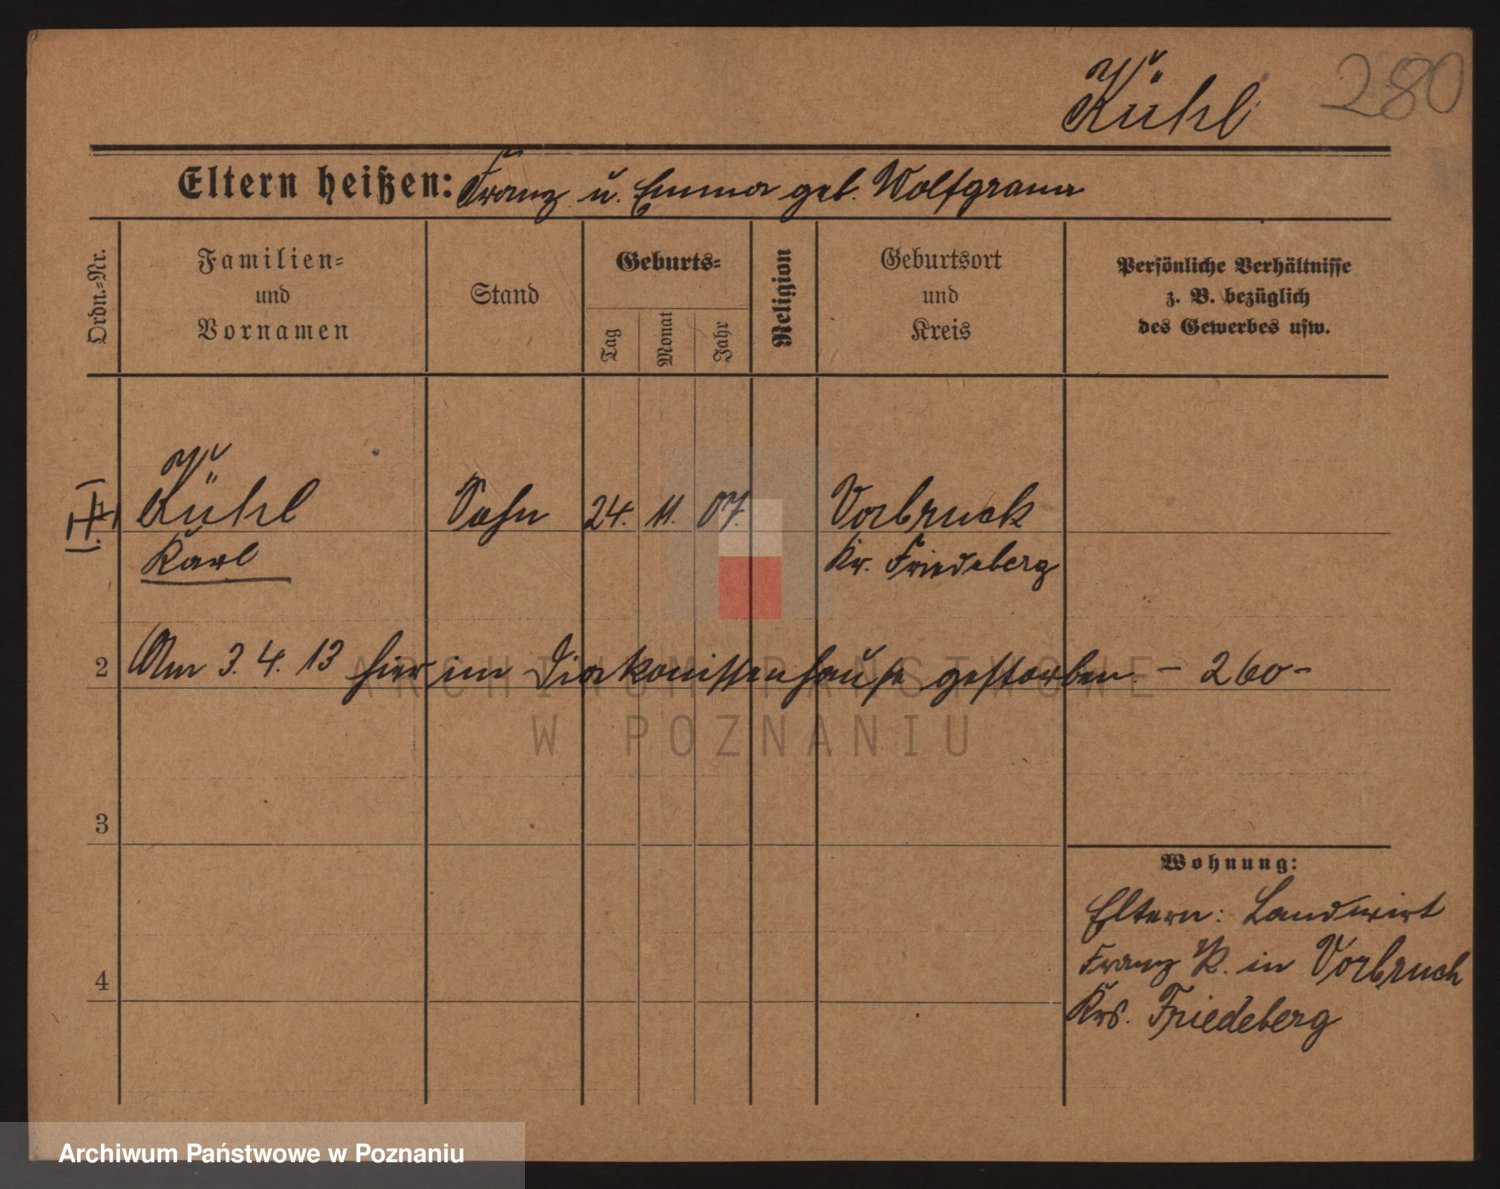 Kühl 280
Eltern heißen: Franz u. Emma geb. Wolfgramm
Ordn.-Nr.
Familien-
und
Vornamen
Stand
Geburts-
Tag
Monat
Jahr
Religion
Geburtsort
und
Kreis
Persönliche Verhältnisse
z. B. bezüglich
des Gewerbes usw.
Kühl Sohn 24. 11. 07. Vorbruch
Karl Kr. Friedeberg
2 Am 3.4.13 hier im Diakonissenhause gestorben. – 260 –
3
4
Wohnung:
Eltern: Landwirt
Franz K. in Vorbruch
Krs. Friedeberg
ARCHIWUM PAŃSTWOWE
W POZNANIU
Archiwum Państwowe w Poznaniu